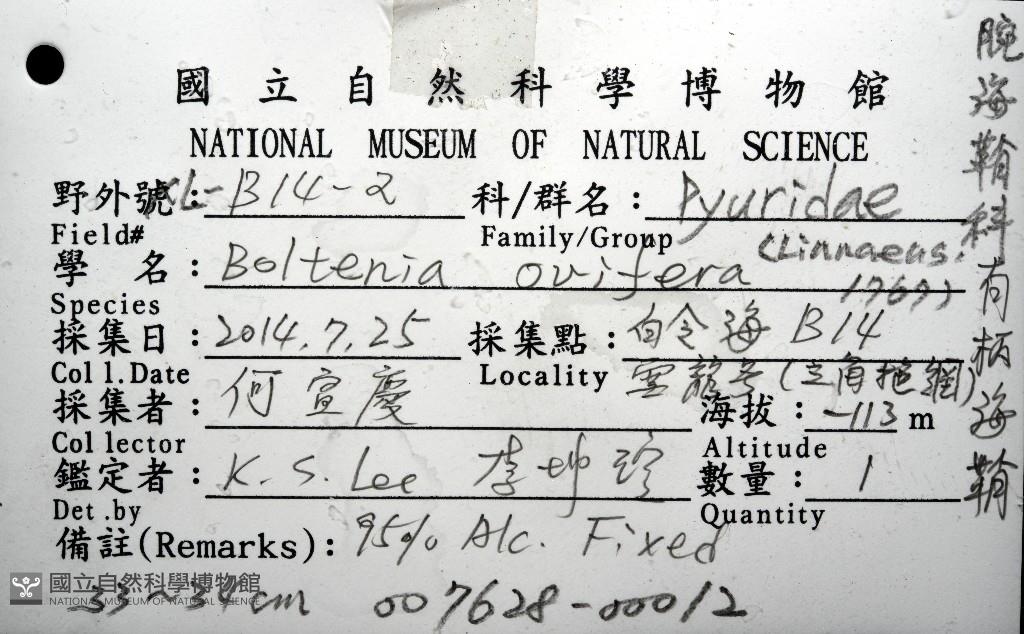 國立自然科學博物館
NATIONAL MUSEUM OF NATURAL SCIENCE
野外號: XL-B14-2 科/群名: Pyuridae
Field# Family/Group (Linnaeus,
學 名: Boltenia ovifera 1767)
Species
採集日: 2014.7.25 採集點: 白令海 B14
Coll.Date Locality 雪龍号(三角拖網)
採集者: 何宣慶 海拔: -113 m
Collector Altitude
鑑定者: K. S. Lee 李坤瑄 數量: 1
Det.by Quantity
備註(Remarks): 95% Alc. Fixed
國立自然科學博物館
NATIONAL MUSEUM OF NATURAL SCIENCE
33~34cm 007628-00012
腕海鞘科有柄海鞘